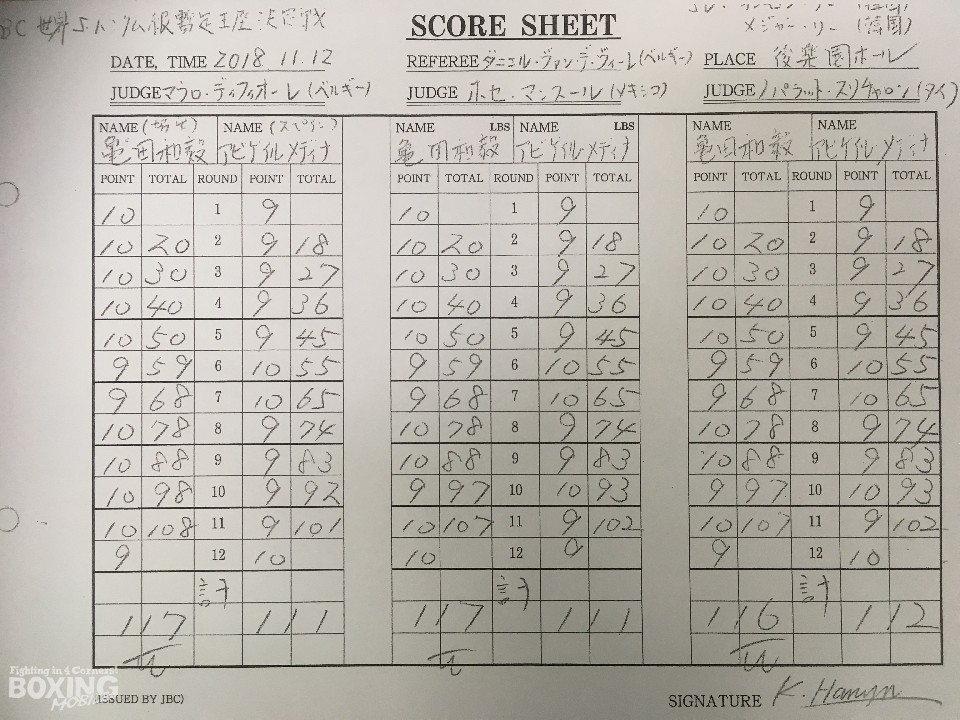 BC 世界Sバンタム級暫定王座決定戦
SCORE SHEET
メジャー・リー (韓国)
DATE, TIME 2018 11.12 REFEREE ダニエル・ヴァン・デ・ヴィーレ (ベルギー) PLACE 後楽園ホール
JUDGE マウロ・ディフィオーレ (ベルギー) JUDGE ホセ・マンスール (メキシコ) JUDGE ノパラット・スリチャロン (タイ)
NAME NAME (スペイン) NAME LBS NAME LBS NAME NAME
亀田和毅 アビゲイル・メディナ 亀田和毅 アビゲイル・メディナ 亀田和毅 アビゲイル・メディナ
POINT TOTAL ROUND POINT TOTAL POINT TOTAL ROUND POINT TOTAL POINT TOTAL ROUND POINT TOTAL
10 1 9 10 1 9 10 1 9
10 20 2 9 18 10 20 2 9 18 10 20 2 9 18
10 30 3 9 27 10 30 3 9 27 10 30 3 9 27
10 40 4 9 36 10 40 4 9 36 10 40 4 9 36
10 50 5 9 45 10 50 5 9 45 10 50 5 9 45
9 59 6 10 55 9 59 6 10 55 9 59 6 10 55
9 68 7 10 65 9 68 7 10 65 9 68 7 10 65
10 78 8 9 74 10 78 8 9 74 10 78 8 9 74
10 88 9 9 83 10 88 9 9 83 10 88 9 9 83
10 98 10 9 92 9 97 10 10 93 9 97 10 10 93
10 108 11 9 101 10 107 11 9 102 10 107 11 9 102
9 12 10 10 12 9 9 12 10
計 計 計
117 111 117 111 116 112
Fighting in 4 Corners!
BOXING
MOBILE
ISSUED BY JBC) SIGNATURE